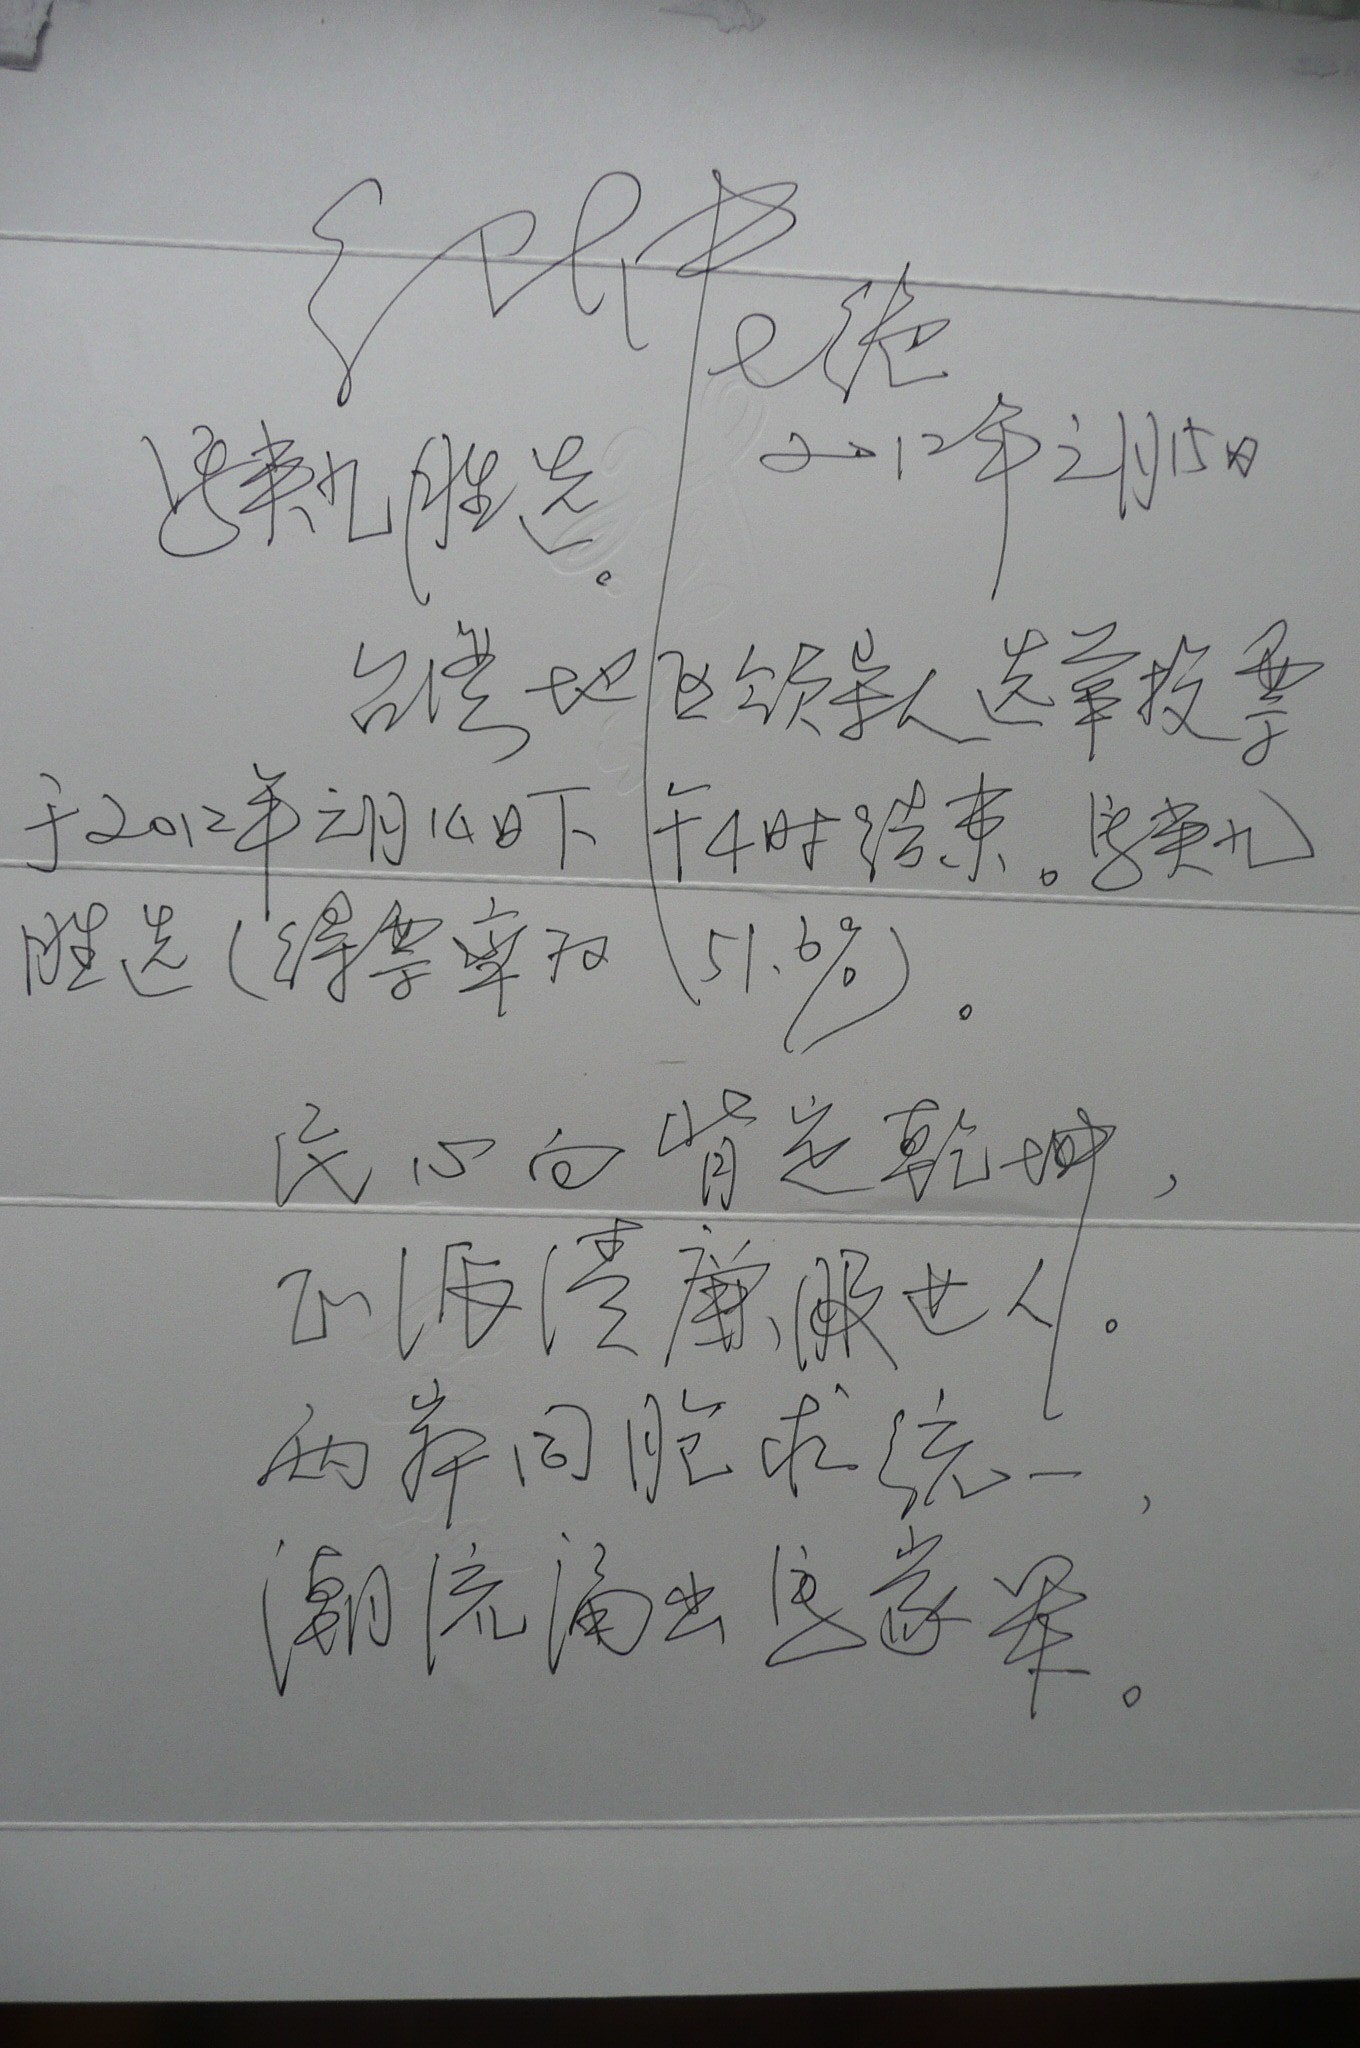 七绝
2012年元月15日
马英九胜选。
台湾地区领导人选举投票
于2012年元月14日下午4时结束。马英九
胜选(得票率为(51.6%)。
民心向背定乾坤,
正派清廉服世人。
两岸同胞求统一,
潮流涌出马家军。